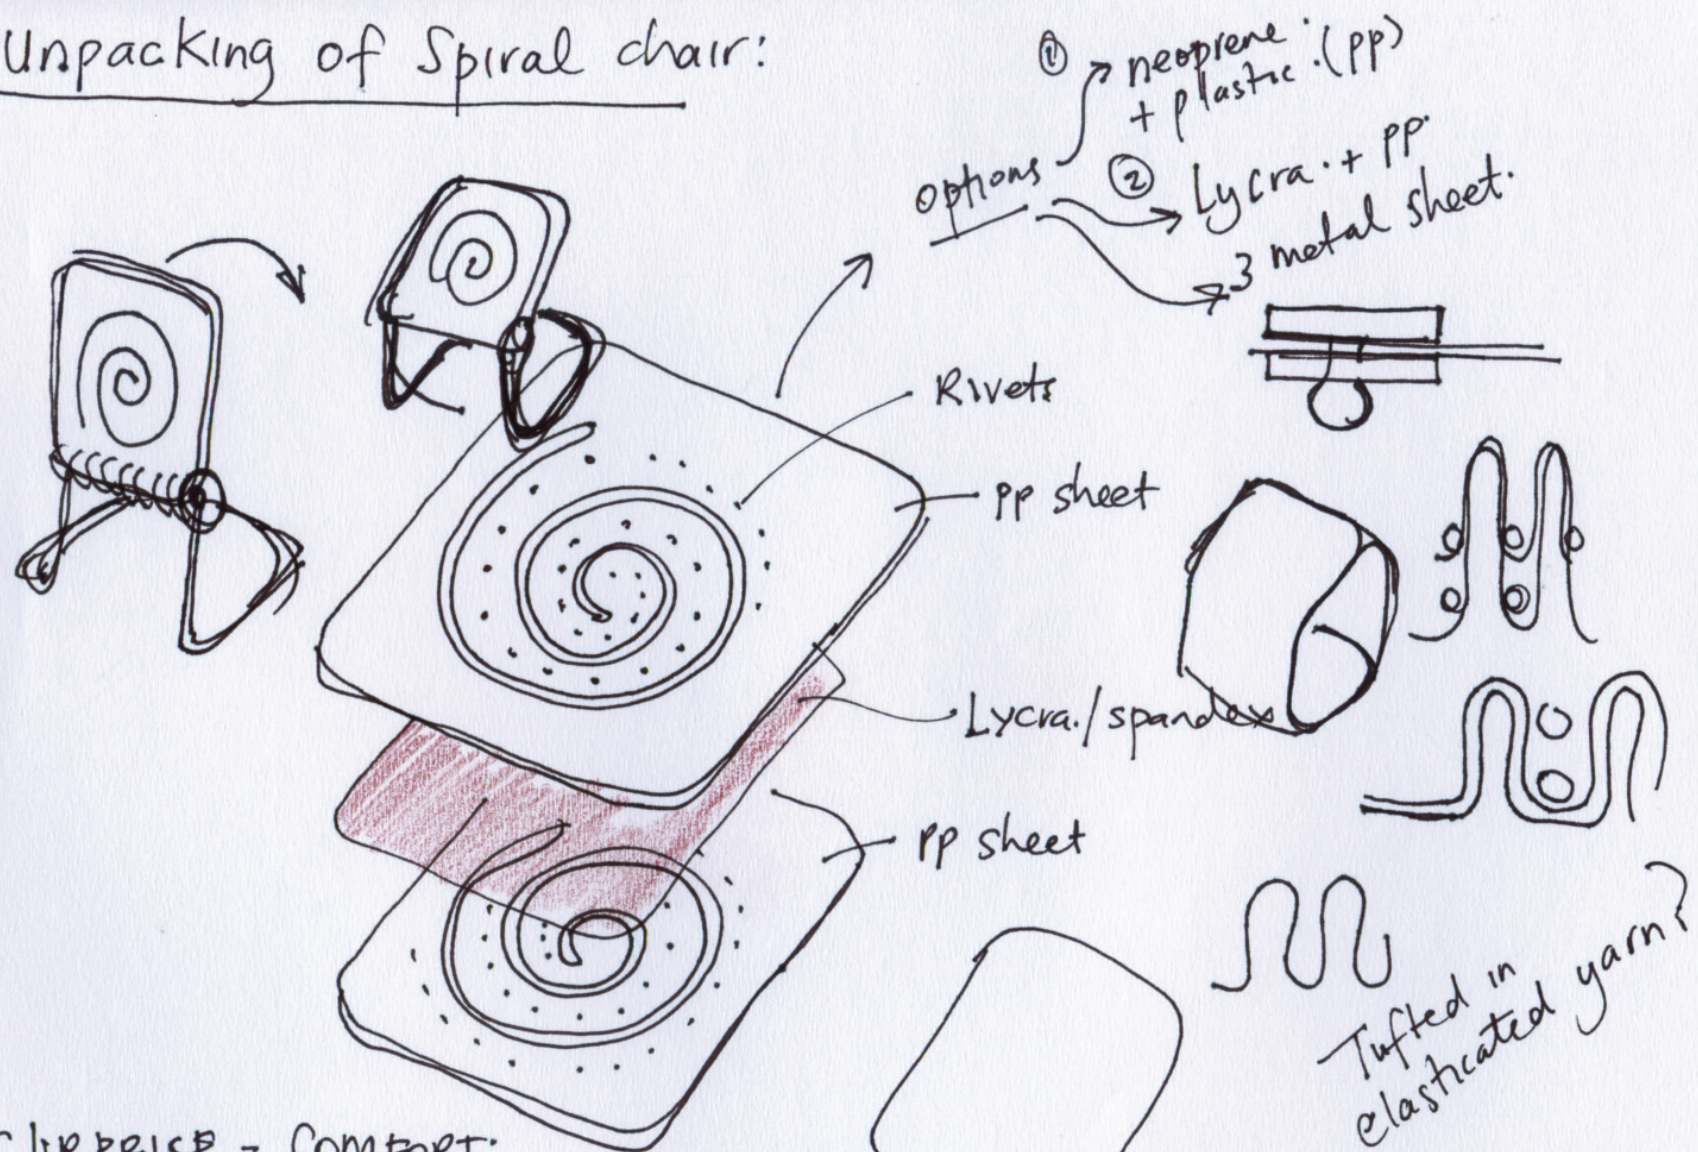 Unpacking of Spiral chair:
options
① neoprene
+ plastic (pp)
② Lycra + pp
3 metal sheet.
Rivets
pp sheet
Lycra./spandex
pp sheet
Tufted in
elasticated yarn?
SURPRISE - COMFORT.